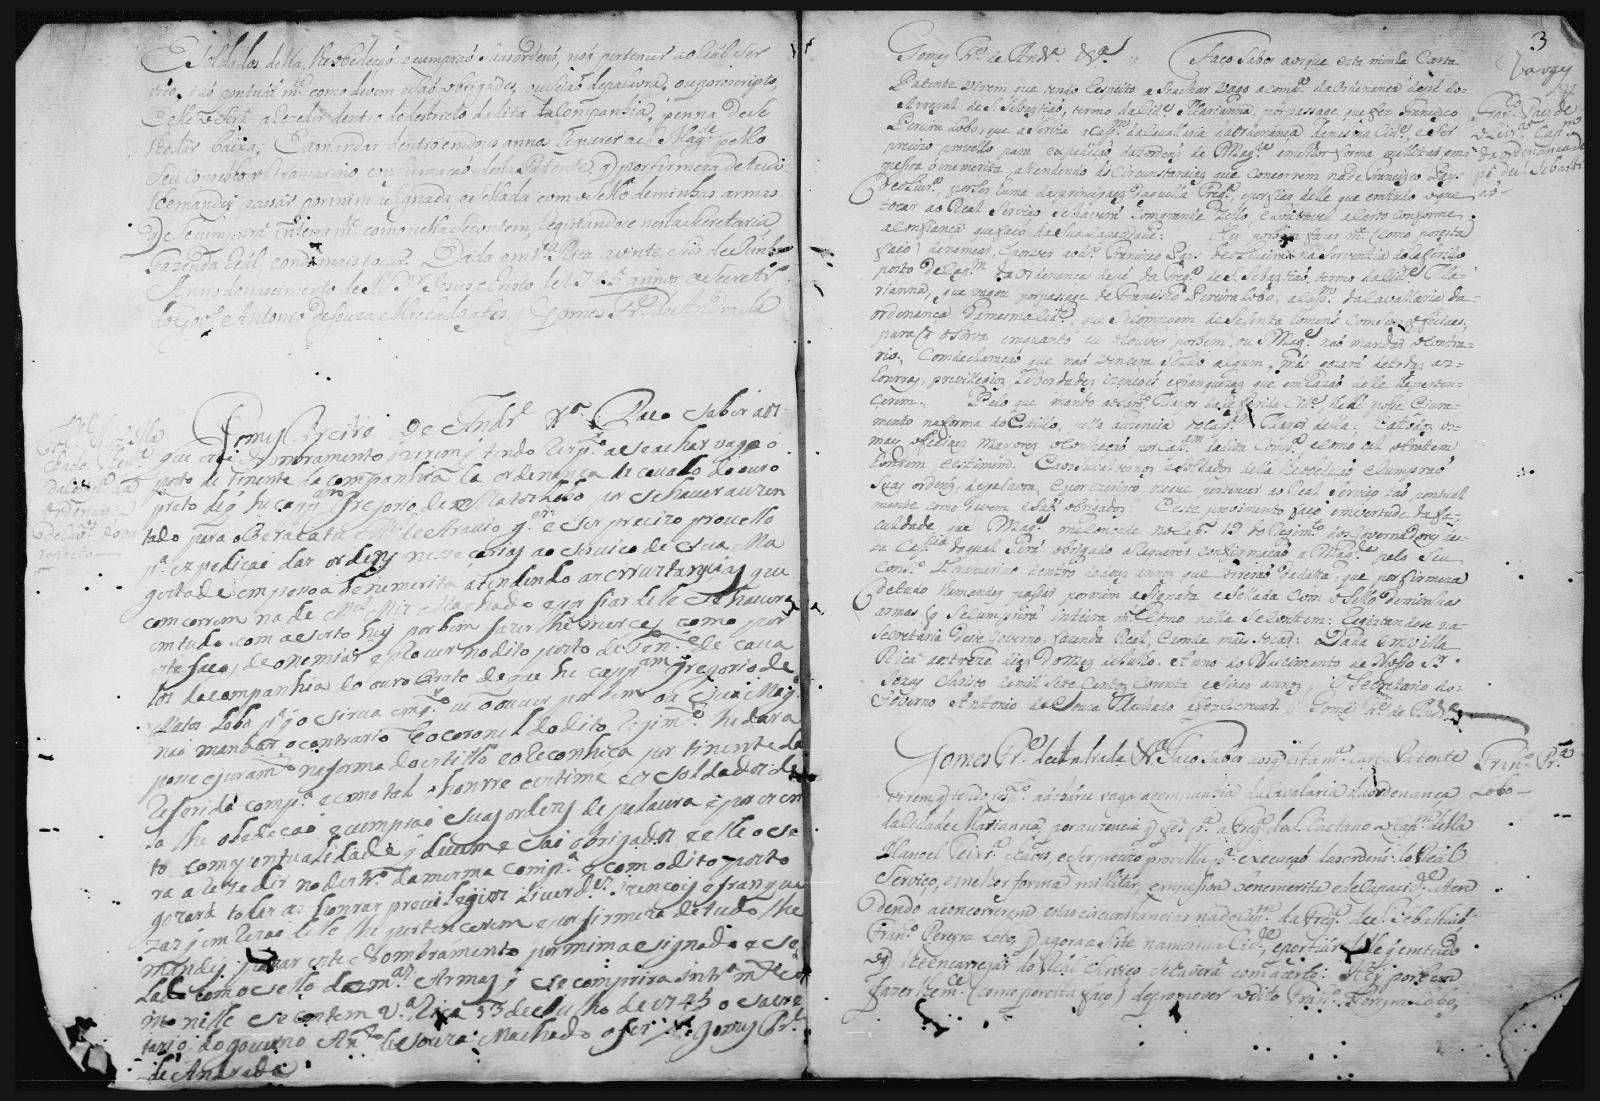 E Soldados della, lhe obedeção e cumprão suas ordens, nos pertencer ao Real Ser
viço, tão pontualmte. como devem e são obrigados, de palavra, ou por escripto,
E elle será a rezidir dentro do destricto de dita Companhia, penna de se
lhe dar baixa, E a mandar dentro em dous annos requerer a S. Magde. pello
Seu Conselho Ultramarino confirmação desta Patente, q por firmeza de tudo
lhe mandei passar por mim asignada e sellada com o Sello de minhas armas
q Se cumprirá inteiramte. como nella Se contem, registandoce nesta Secretaria
Fazenda Real, e onde mais tocar. Dada em Va. Rica a vinte, seis de Junho
Anno do nascimento de N. Sr. Jesus Cristo de 1745 annos, o Secretro.
do Govo. Antonio de Souza Machado a fez // Gomes Fr. de Andrada
Mel. Miz Ma
chado. Tente.
da Compa. da
ordenança
de cavo. do ouro
preto
Gomes Freire de Andra. Va. Faço saber aos
que este Nombramento virem q tendo respto. a se achar vago o
posto de tinente da companhia da ordenança de cavallo do ouro
preto de q he cappam. Gregorio de Matos Lobo por se haver auzen
tado para o Beracatu Ml. de Araujo qm. e ser precizo provello
pa. expedição das ordens nesse cerias ao serviço de Sua Ma
gestade em pessoa benemerita atendendo as circustancias que
comcorrem na de Mel. Miz Machado e por fiar delle Se havera
em tudo com acerto hey por bem fazer lhe merce, como por
este faço, de o nomiar e prover no dito posto de Tente. de cava
los da companhia do ouro Preto de que he cappam Gregorio de
Matos Lobo pa. q o sirva emqto. eu o ouver por bem ou Sua Mage.
não mandar o contrario E o coronel do dito Regimto. lhe dara
posse e juramto na forma do estillo e o reconheça por tinente da
referida compa. e como tal o honrre e estime e os Soldados de
la lhe obedeção, e cumprão suas ordens de palavra e por escri
to com pontualidade q devem e são obrigados e elle o se
ra a rezedir no destro. da mesma compa. e com o dito posto
gozará todas as honras previlegios liverdes. izencois e franque
zas q em rezão delle lhe pertencerem e por firmeza de tudo lhe
mandey passar este Nombramento por mim asignado e se
lado com o sello de mas. Armas q se comprira intra mte. co
mo nelle se contem Va. Rica 13 de Julho de 1745 o Secre
tario do governo Anto. de Souza Machado o fez // Gomes Fr.
de Andrada
3
Gomes Fre. de Andra. Va. // Faço Saber aos que esta minha Carta
Patente virem que tendo respeito a Se achar vago a compa. da Ordenança de pé do
Arrayal de S. Sebastiao, termo da Cide. Marianna, por passage que fez Francisco
Pereira Lobo, que a Servia a Capm. da Cavallaria da Ordenança da mesma Cide. e Ser
precizo provello para expedição das ordens de S. Mage. e milhor forma millitar em
pessoa benemerita, attendendo as Circunstancias que concorrem na de Francisco Pays
de Olivra., por Ser huma das principaes daquella Frega., e por fiar delle que em tudo o que
tocar ao Real Serviço Se haverá com grande zello, e louvavel acerto conforme
a confiança que faço da Sua Capacidade: Hey por bem fazer mce. (como por esta
faço) de nomear, e prover ao do. Francisco Pays de Oliveira na Serventia do referido
posto de Capm. da Ordenança de pé da Frega. de S. Sebastiao, termo da Cide. Ma-
rianna, que vagou por passage de Francisco Pereira Lobo, a Capm. da Cavallaria da
ordenança da mesma Cide., que Se compoem de Sesenta homens com Seus officiaes,
para q o Sirva emquanto eu o houver por bem, ou S. Mage. não mandar o contra-
rio, Com declaração que não vencera Soldo algum, mas gozará de todas as
honrras, previllegios, liberdades izençoes e franquezas que em razão delle lhe perten-
cerem. Pelo que mando ao Sargto. Mayor da referida Cide., lhe dê posse e jura-
mento na forma do Estillo,
mays officiaes Mayores o conheção por Capam. da dita Compa., e como tal o tratem
honrem, e estimem. E aos officiaes e Soldados della lhe obedeção e cumprão
Suas ordens, de palavra, e por escripto no que pertencer ao Real Serviço tão pontual
mente como devem e São obrigados: E este provimento faço em virtude da fa-
culdade que S. Mage. me concede no Capo. 12 do Regimto. dos Governadores des-
ta Capnia. do qual Será obrigado a requerer confirmação a S. Magde. pelo Seu
Conso. Ultramarino dentro de dous annos que correrão da datta; que por firmeza
de tudo lhe mandey passar por mim asignada e Sellada com o Sello de minhas
armas q Se cumprirá inteira mte. como nella Se contem: Registandose na
Secretaria deste Governo, fazenda Real, e onde mais tocar: Dada em Villa
Rica aos treze dias do mes de Julho. Anno do Nascimento de Nosso Sr.
Jezus Christo de mil Sete Centos Corenta e Sinco annos, O Secretario do
Governo Antonio de Souza Machado a fez escrever // Gomes Fre. de Andra.
Franco. Pays de
Olivra. Capm.
da ordenança de
pé de S. Sebasti
ao
Gomes Fre. de Andrada Va. Faço Saber aos q esta ma. carta Patente
virem q tendo respto. a Se achar vaga a companhia da Cavalaria da ordenança
da Cidade Marianna, por auzencia q fes pa. a Frega. de S. Caetano o Capm. della
Manoel Teixra. Chaves, e Ser precizo provella pa. execução das ordens do Real
Serviço, e melhor forma militar, em pessoa benemerita e de Capacide. Aten
dendo a concorrerem estas circunstancias na do Capm. da Frega. de S. Sebastiao
Franco. Pereyra Lobo, q agora asiste na mesma Cide., e por fiar delle q em tudo
o q lhe encarregar do Real Serviço Se haverá com acerto: Hey por bem
fazer lhe mce. (como por esta faço) de prover o dito Franco. Pereyra Lobo,
Franco. Pra.
Lobo